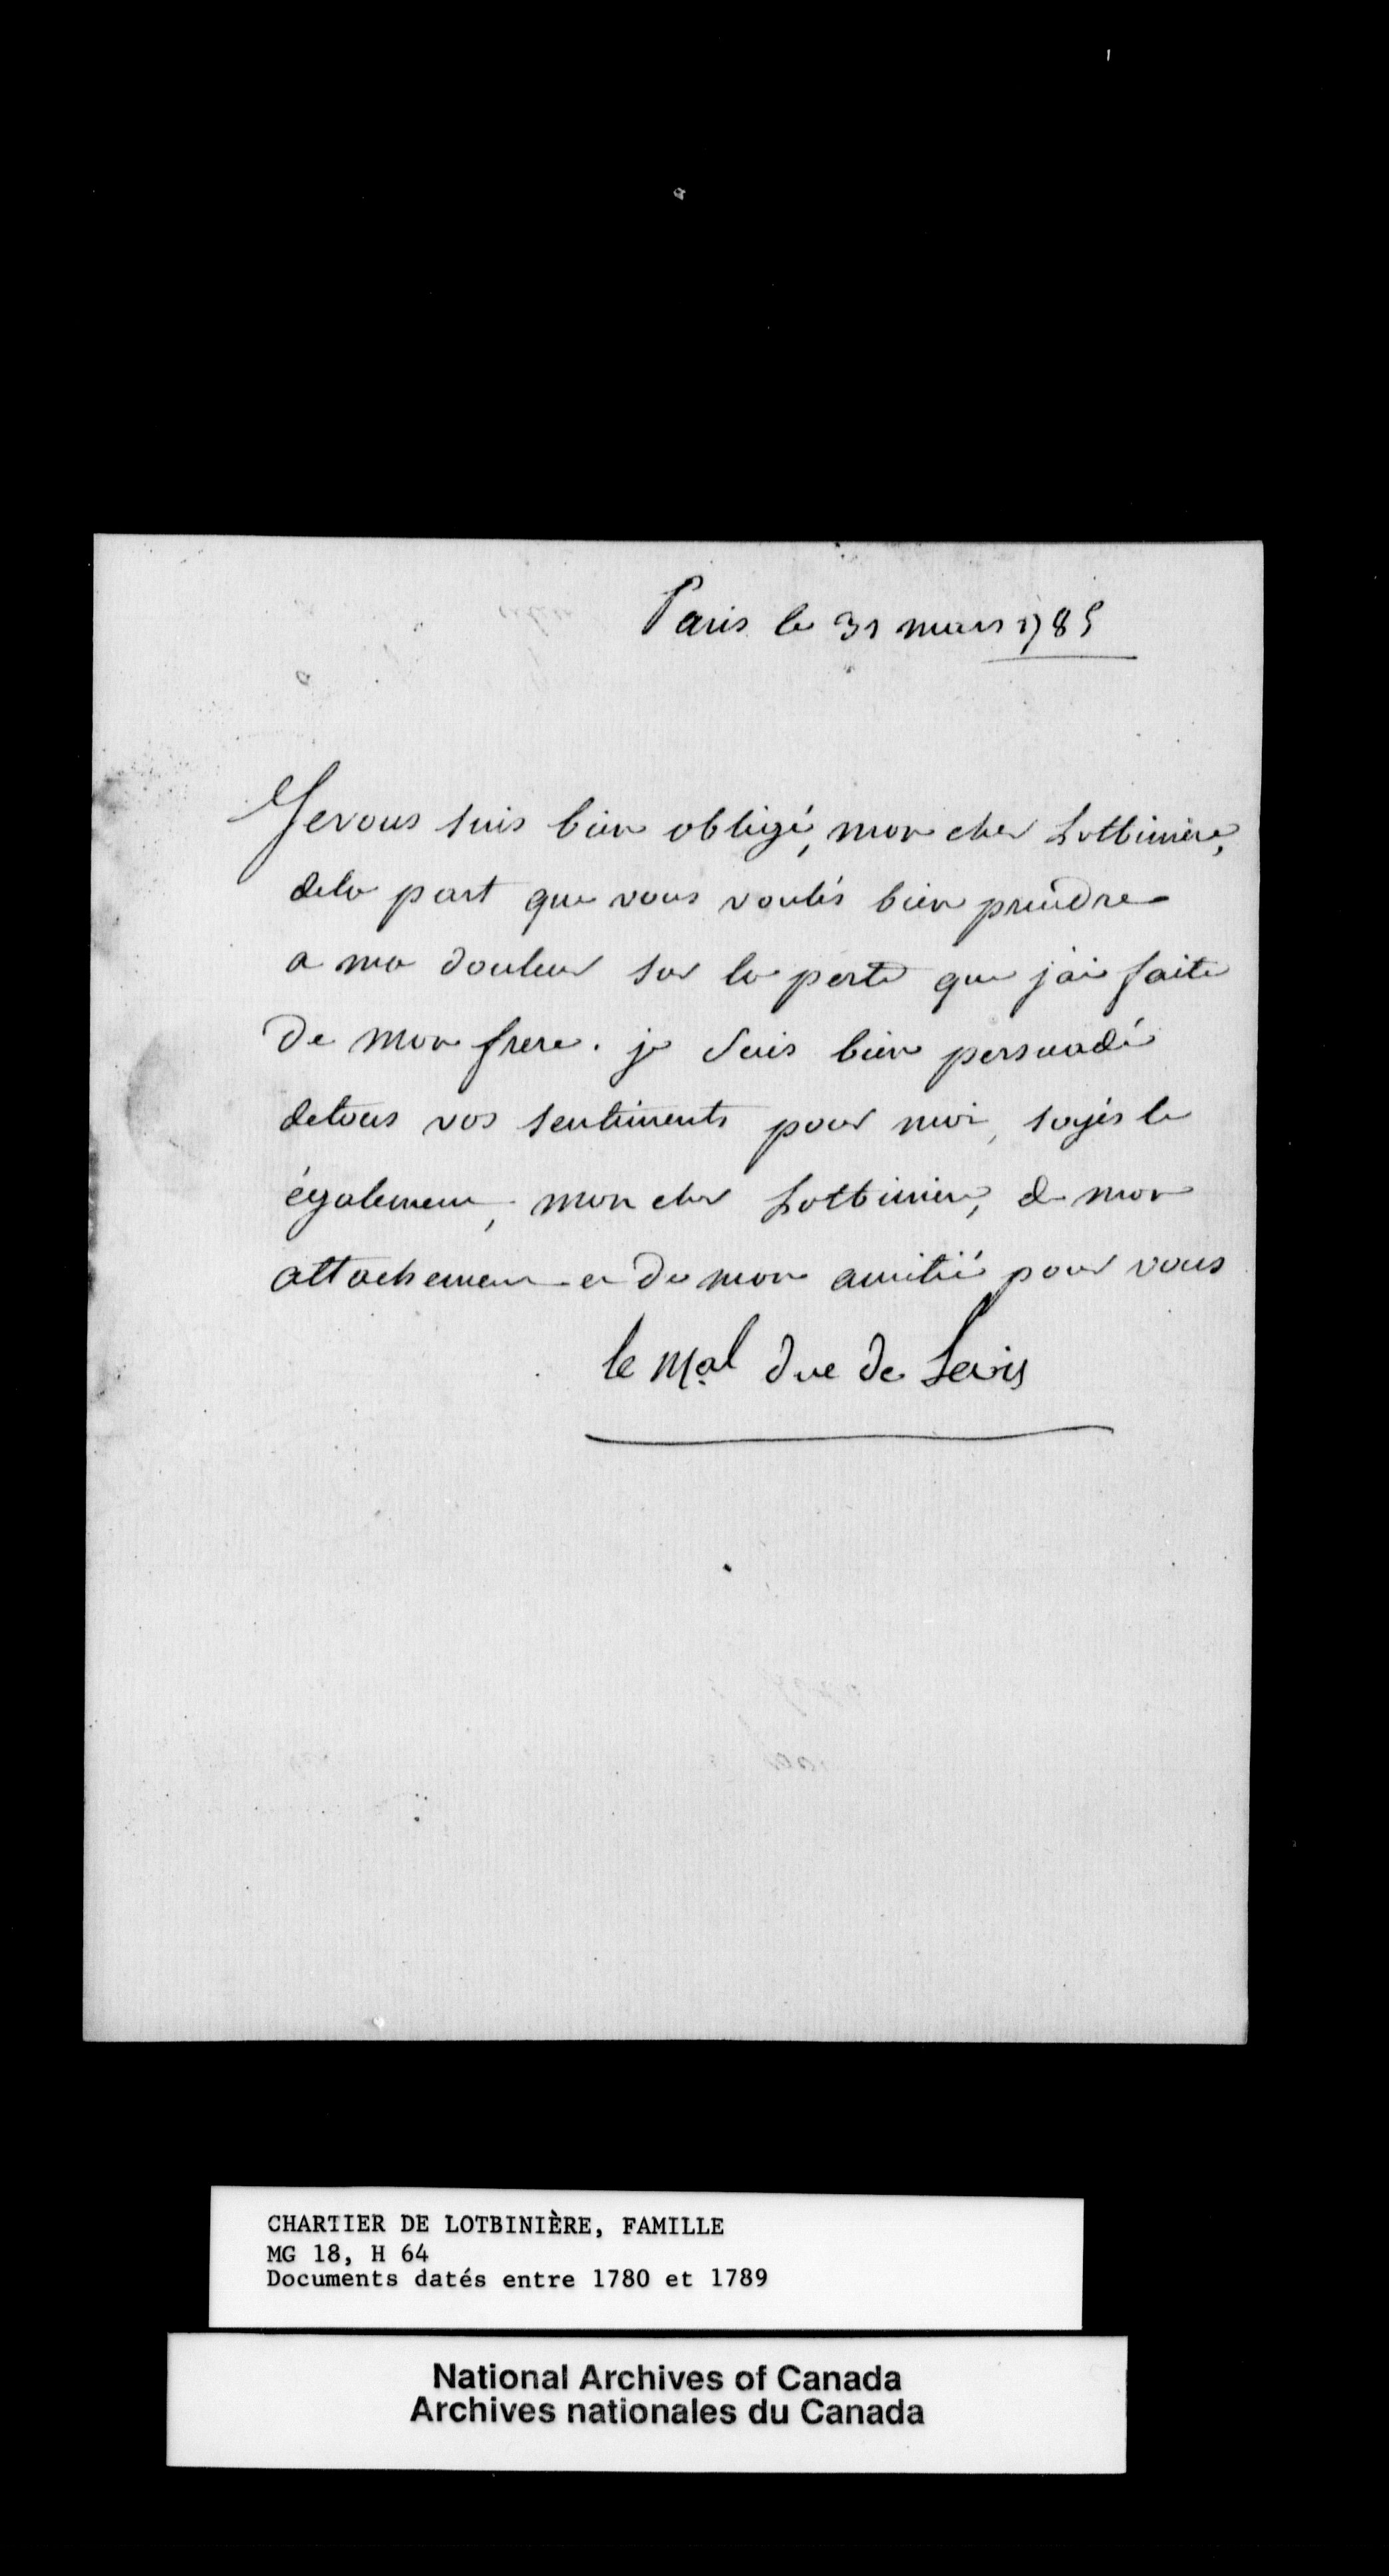 Paris le 31 mars 1785
Je vous suis bien obligé, mon cher Lotbiniere,
dela part que vous voulés bien prendre
a ma douleur sur la perte que j'ai faite
de mon frere. je suis bien persuadé
detous vos sentiments pour moi, soyés le
également, mon cher Lotbiniere, de mon
attachement et de mon amitié pour vous
le Mal duc de Levis
CHARTIER DE LOTBINIÈRE, FAMILLE
MG 18, H 64
Documents datés entre 1780 et 1789
National Archives of Canada
Archives nationales du Canada